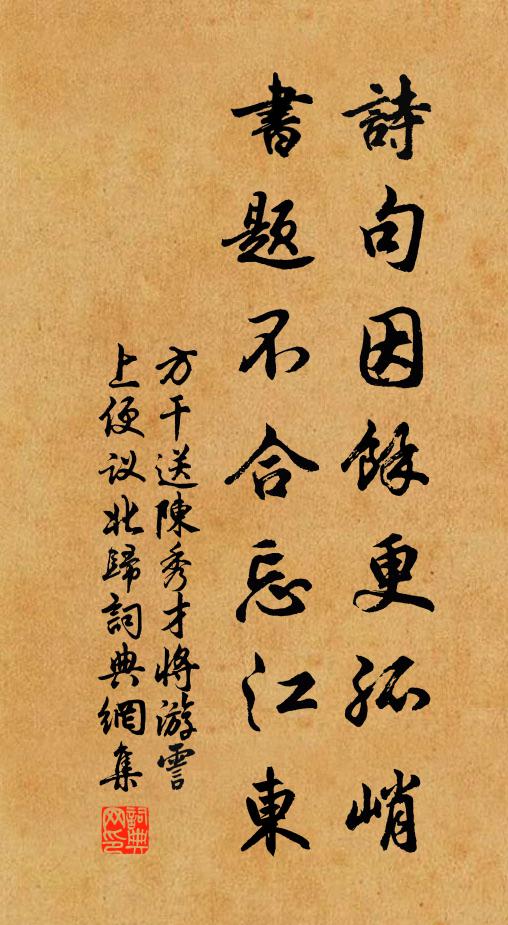 詩句因餘更孤峭
書題不合忘江東
方干送陳秀才將游霅
上便议北歸詞典網集
詞典网印